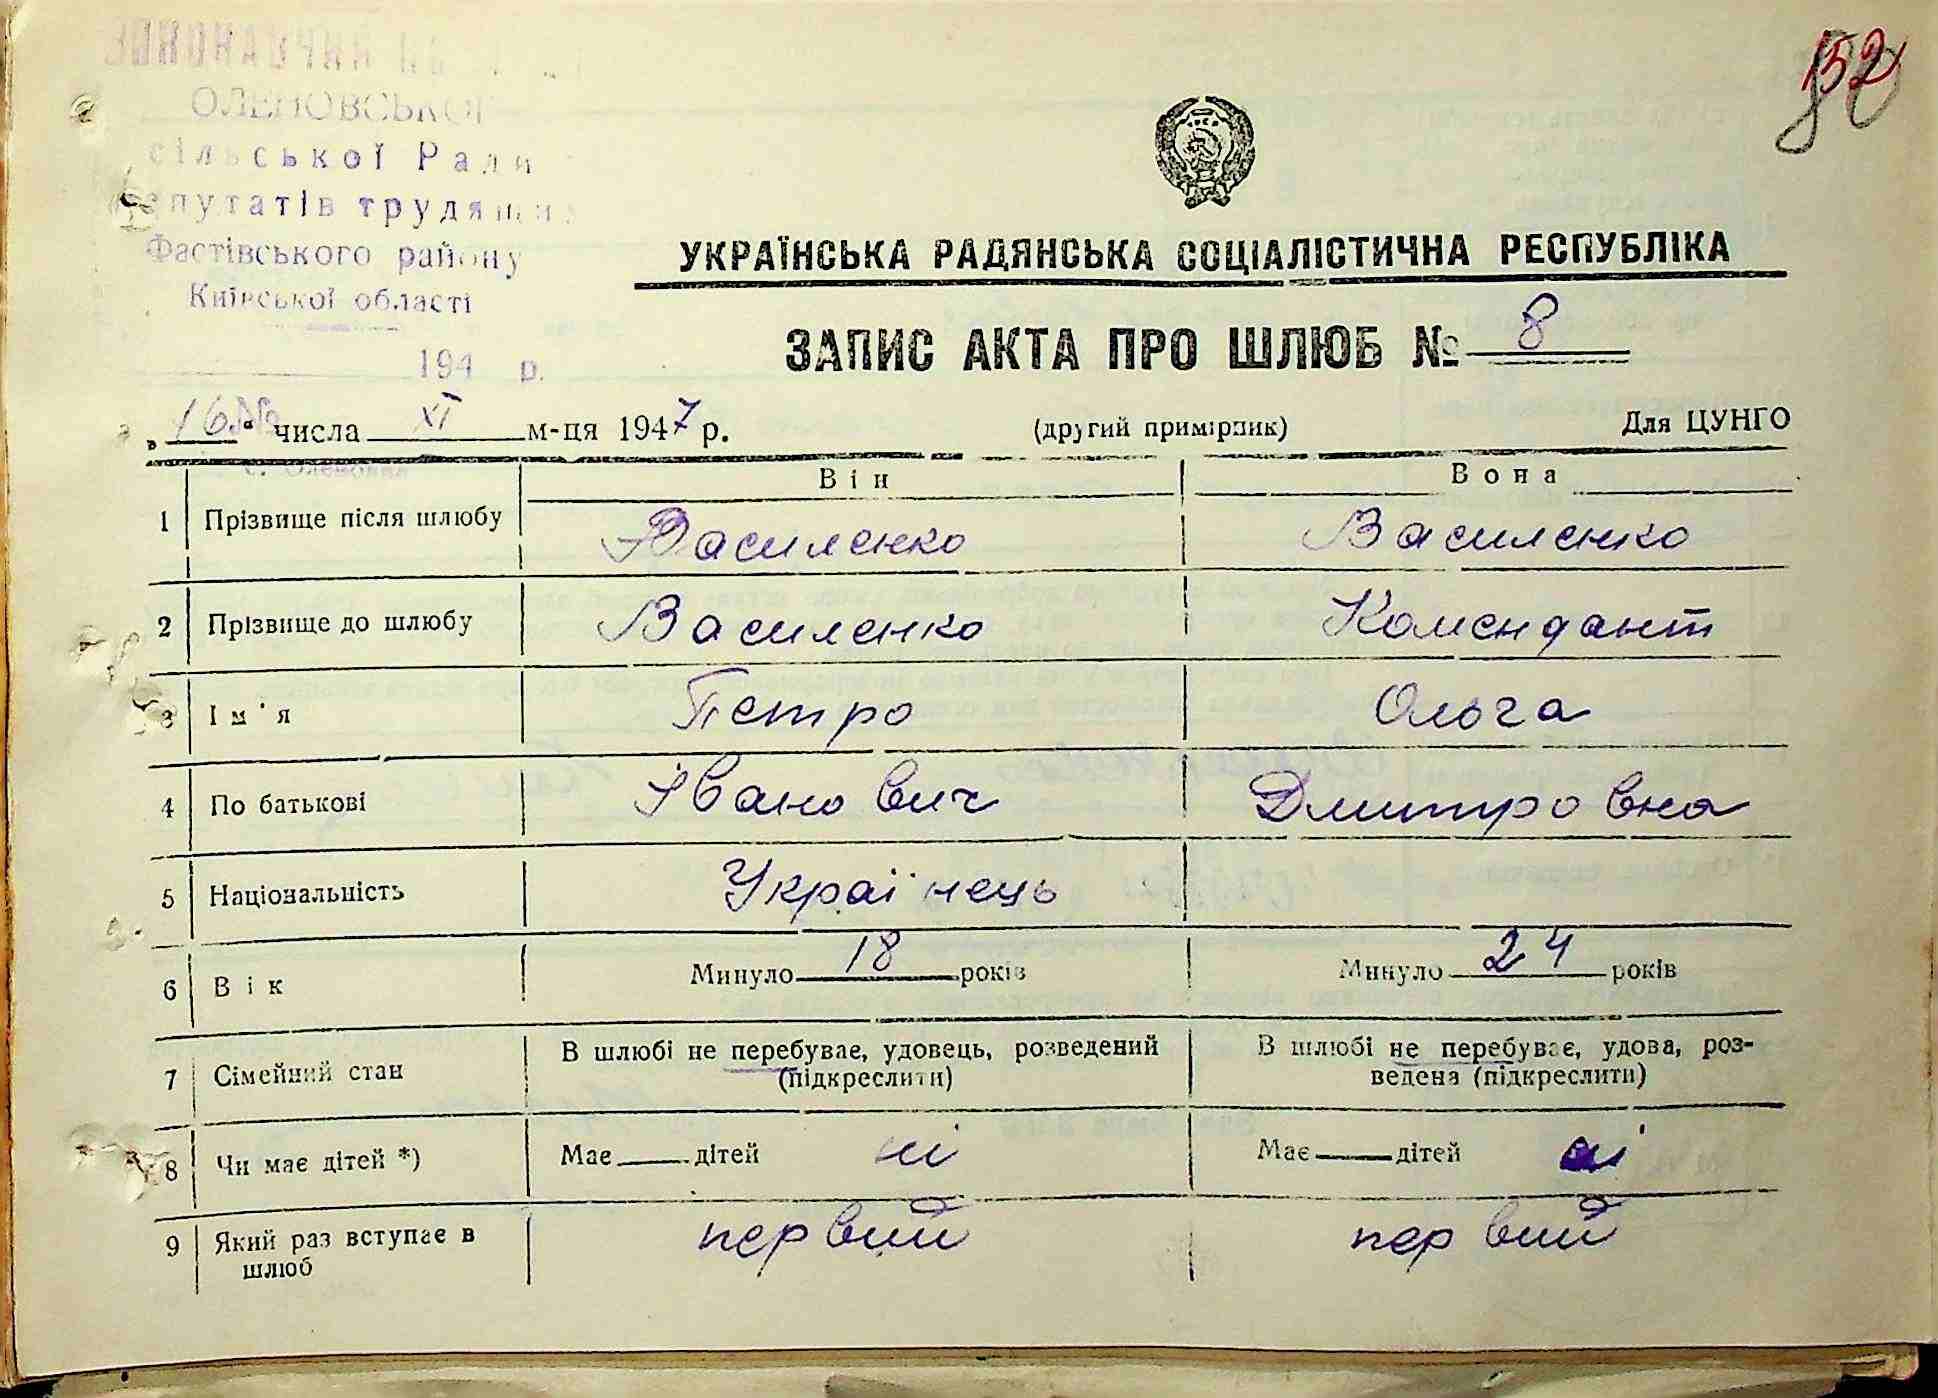 152
80
ОЛЕНОВСЬКОЇ
сільської Ради
депутатів трудящих
Фастівського району
Київської області
194 р.
с. Оленовка
УКРАЇНСЬКА РАДЯНСЬКА СОЦІАЛІСТИЧНА РЕСПУБЛІКА
ЗАПИС АКТА ПРО ШЛЮБ № 8
„16“ числа XI м-ця 1947 р. (другий примірник) Для ЦУНГО
Він Вона
1 Прізвище після шлюбу Василенко Василенко
2 Прізвище до шлюбу Василенко Комендант
3 Ім'я Петро Ольга
4 По батькові Іванович Дмитровна
5 Національність Українець
6 Вік Минуло 18 років Минуло 24 років
7 Сімейний стан В шлюбі не перебуває, удовець, розведений (підкреслити) В шлюбі не перебуває, удова, роз-
ведена (підкреслити)
8 Чи має дітей *) Має дітей ні Має дітей ні
9 Який раз вступає в шлюб первий первий